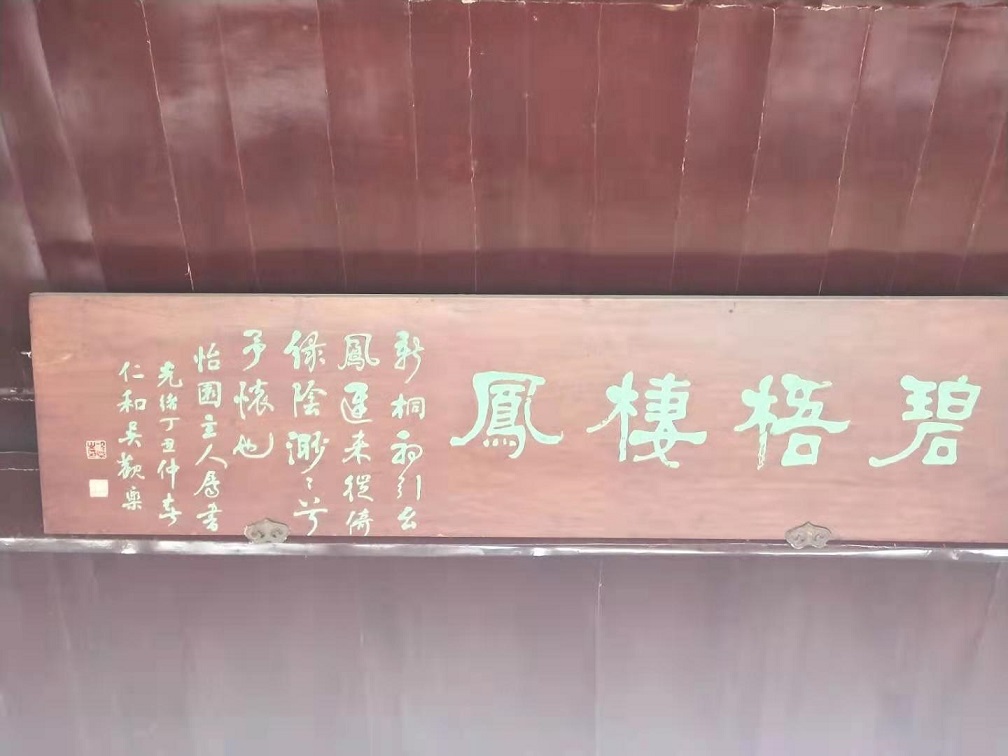 碧梧棲鳳
新桐初引玄
鳳遲来徙倚
緑陰渺〻兮
予懷也
怡園主人屬書
光緒丁丑仲春
仁和吳觀樂